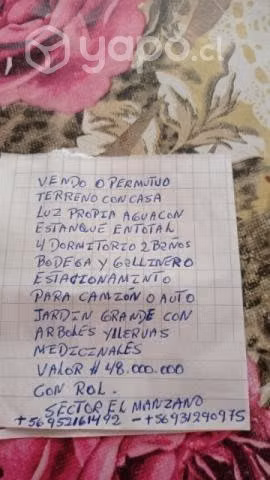 yapo.cl
VENDO O PERMUTUO
TERRENO CON CASA
LUZ PROPIA AGUA CON
ESTANQUE EN TOTAL
4 DORMITORIO 2 BAÑOS
BODEGA Y GALLINERO
ESTACIONAMINTO
PARA CAMIÓN O AUTO
JARDIN GRANDE CON
ARBOLES Y YERVAS
MEDICINALES
VALOR $ 48.000.000
CON ROL.
SECTOR EL MANZANO
+56952161492 - +56931290975